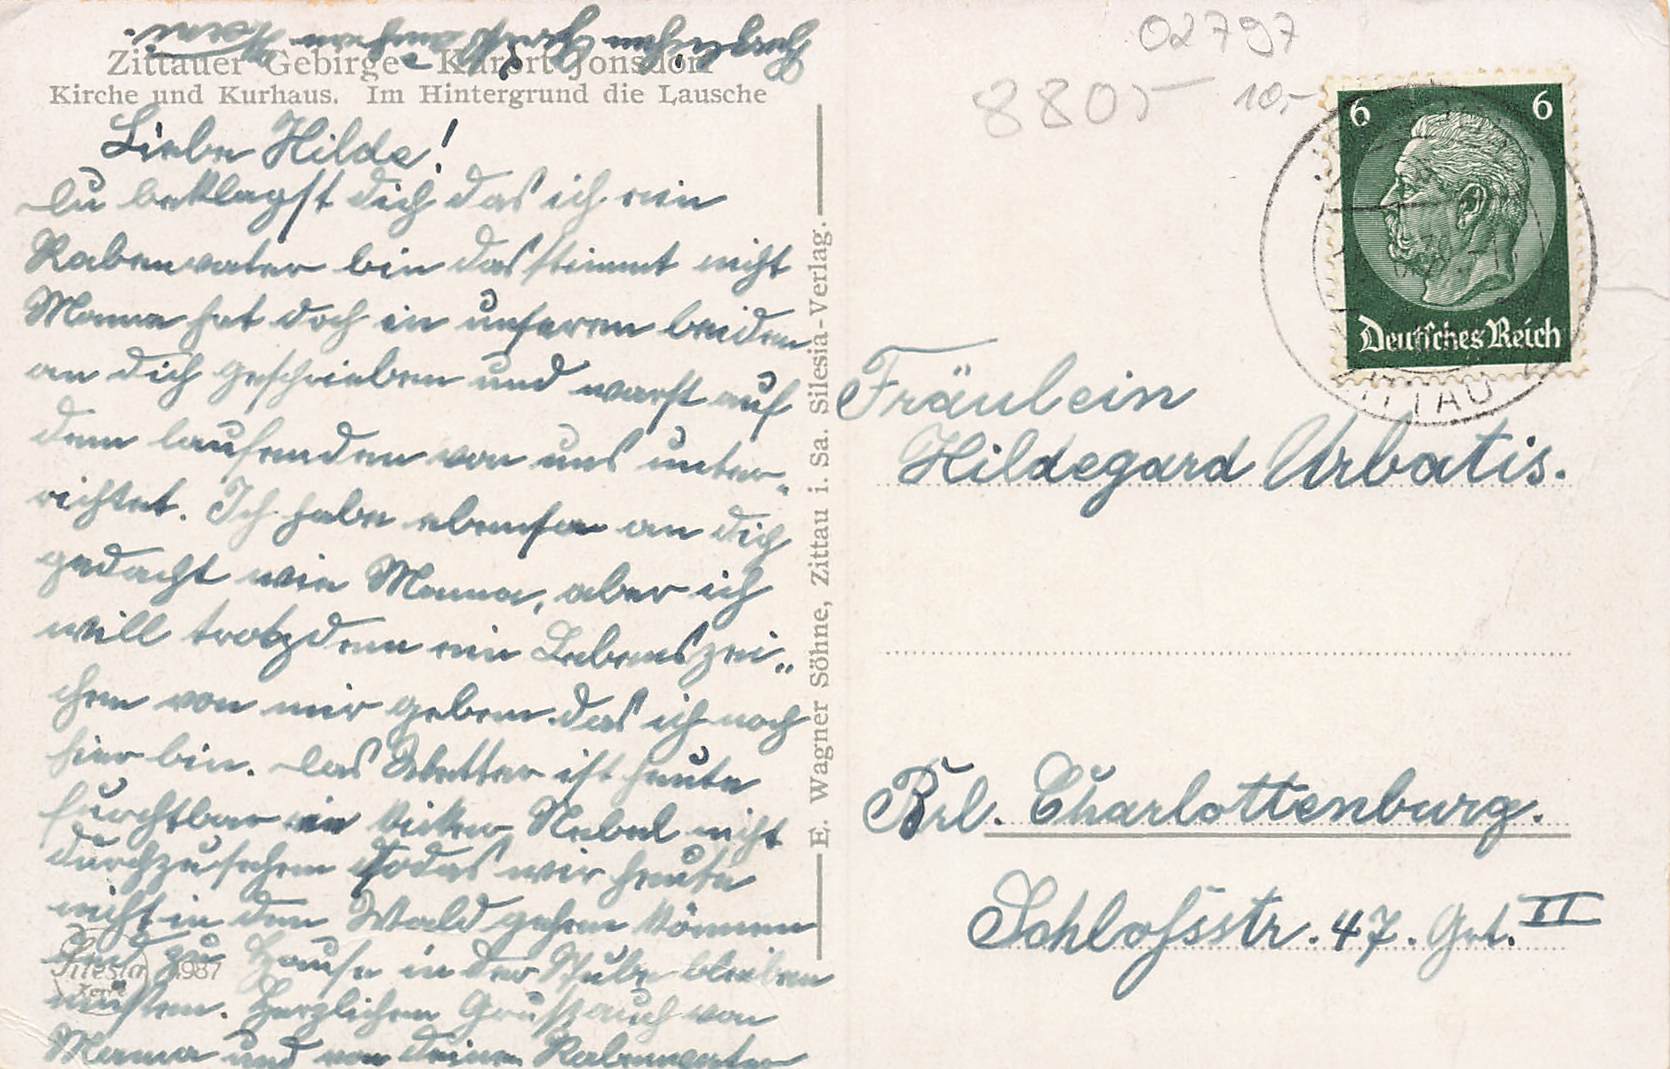 Zittauer Gebirge Kurort Jonsdorf
Kirche und Kurhaus. Im Hintergrund die Lausche
Liebe Hilde!
Du beklagst dich das ich ein
Rabenvater bin das stimmt nicht
Mama hat doch in unseren beiden
an dich geschrieben und warst auf
dem laufenden von uns unter-
richtet. Ich habe ebenso an dich
gedacht wie Mama, aber ich
will trotzdem ein Lebenszei-
chen von mir geben das ich noch
hier bin. Das Wetter ist heute
furchtbar ein dicker Nebel nicht
durchzusehen sodas wir heute
nicht in den Wald gehen können
und zu Hause in der Stube bleiben
müssen. Herzlichen Gruß auch von
Mama und von deinem Rabenvater
Silesia
Karte
1987
E. Wagner Söhne, Zittau i. Sa. Silesia-Verlag.
02797
8805
10,-
6 6
Deutsches Reich
ZITTAU
Fräulein
Hildegard Urbatis.
Brl. Charlottenburg.
Schloßstr. 47. Grt. II